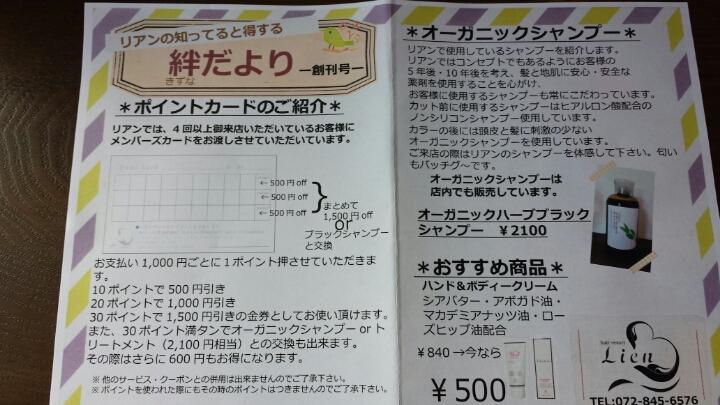 リアンの知ってると得する
絆だより
きずな
ー創刊号ー
＊ポイントカードのご紹介＊
リアンでは、４回以上御来店いただいているお客様に
メンバーズカードをお渡しさせていただいています。
←500円off
←500円off
←500円off
まとめて
1,500円off
or
ブラックシャンプー
と交換
お支払い1,000円ごとに１ポイント押させていただきま
す。
10ポイントで500円引き
20ポイントで1,000円引き
30ポイントで1,500円引きの金券としてお使い頂けます。
また、30ポイント満タンでオーガニックシャンプーorト
リートメント（2,100円相当）との交換も出来ます。
その際はさらに600円もお得になります。
※他のサービス・クーポンとの併用は出来ませんのでご了承下さい。
※ポイントを使われた際にもその時のポイントはつきませんのでご了承下さい。
＊オーガニックシャンプー＊
リアンで使用しているシャンプーを紹介します。
リアンではコンセプトでもあるようにお客様の
５年後・10年後を考え、髪と地肌に安心・安全な
薬剤を使用することを心がけ、
お客様に使用するシャンプーも常にこだわっています。
カット前に使用するシャンプーはヒアルロン酸配合の
ノンシリコンシャンプー使用しています。
カラーの後には頭皮と髪に刺激の少ない
オーガニックシャンプーを使用しています。
ご来店の際はリアンのシャンプーを体感して下さい。匂い
もバッチグ～です。
オーガニックシャンプーは
店内でも販売しています。
オーガニックハーブブラック
シャンプー ￥2100
＊おすすめ商品＊
ハンド＆ボディークリーム
シアバター・アボガド油・
マカデミアナッツ油・ロー
ズヒップ油配合
￥840→今なら
￥500
hair resort
Lien
TEL:072-845-6576